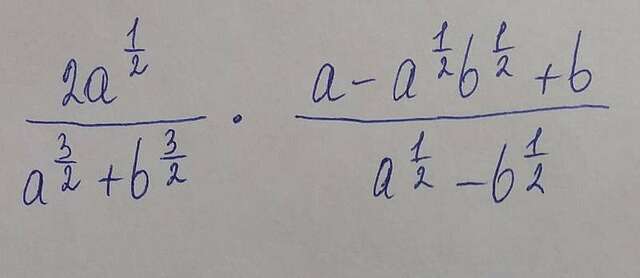 \frac{2a^{\frac{1}{2}}}{a^{\frac{3}{2}}+b^{\frac{3}{2}}} \cdot \frac{a-a^{\frac{1}{2}}b^{\frac{1}{2}}+b}{a^{\frac{1}{2}}-b^{\frac{1}{2}}}